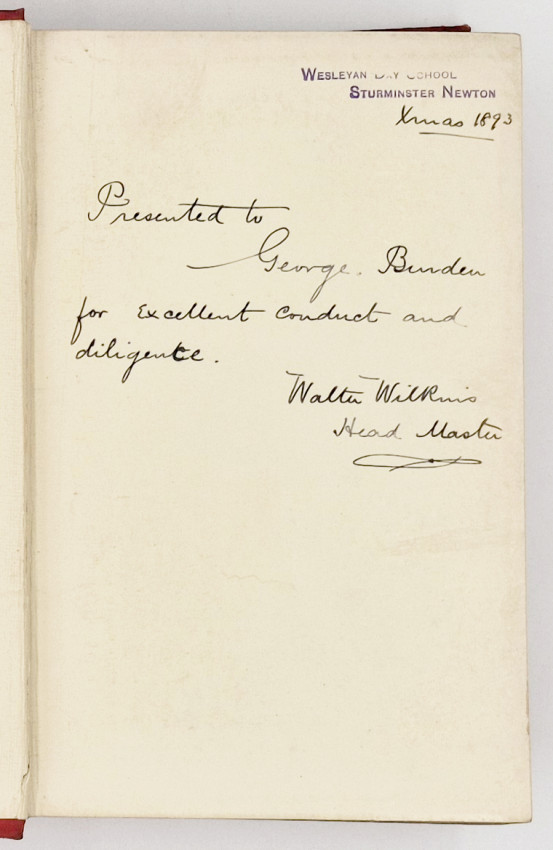 WESLEYAN DAY SCHOOL
STURMINSTER NEWTON
Xmas 1893
Presented to
George. Burden
for Excellent Conduct and
diligence.
Walter Wilkins
Head Master